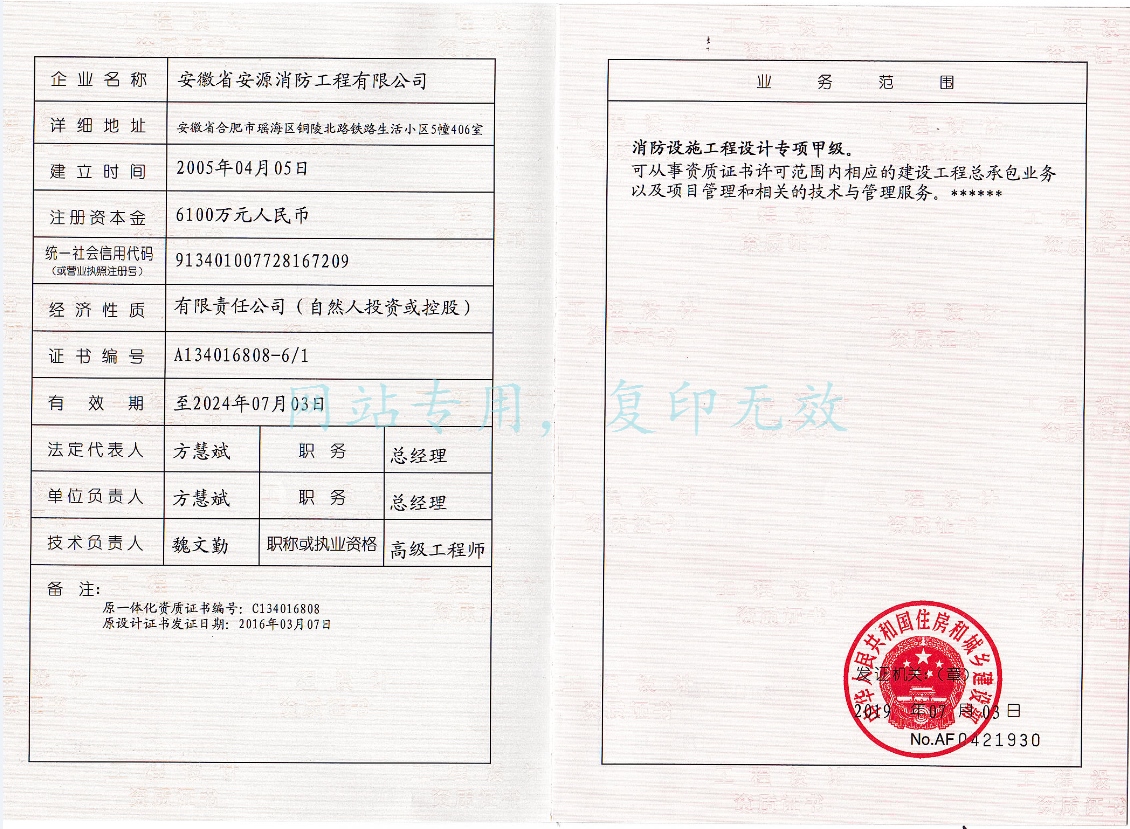 企业名称 安徽省安源消防工程有限公司
详细地址 安徽省合肥市瑶海区铜陵北路铁路生活小区5幢406室
建立时间 2005年04月05日
注册资本金 6100万元人民币
统一社会信用代码 913401007728167209
(或营业执照注册号)
经济性质 有限责任公司（自然人投资或控股）
证书编号 A134016808-6/1
有效期 至2024年07月03日
法定代表人 方慧斌 职务 总经理
单位负责人 方慧斌 职务 总经理
技术负责人 魏文勤 职称或执业资格 高级工程师
备注:
原一体化资质证书编号：C134016808
原设计证书发证日期：2016年03月07日
业务范围
消防设施工程设计专项甲级。
可从事资质证书许可范围内相应的建设工程总承包业务
以及项目管理和相关的技术与管理服务。******
网站专用，复印无效
中华人民共和国住房和城乡建设部
发证机关：（章）
2019年07月03日
No.AF0421930
工程设计
资质证书